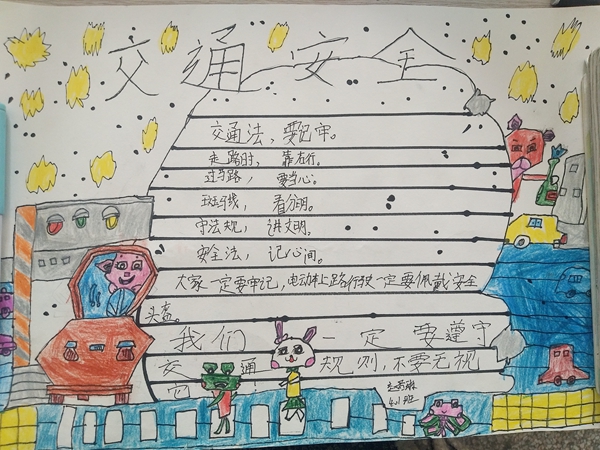 交通安全
交通法，要记牢。
走路时，靠右行。
过马路，要当心。
斑马线，看分明。
守法规，讲文明。
安全法，记心间。
大家一定要牢记，电动车上路行驶一定要佩戴安全
头盔。
我们一定要遵守
交通规则，不要无视
它！